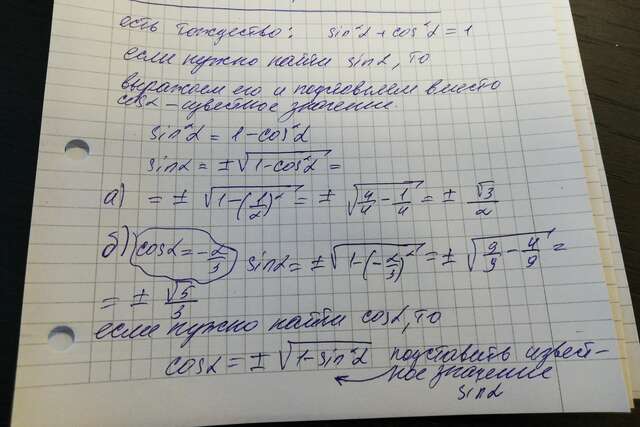 есть тождество: sin²α + cos²α = 1
если нужно найти sinα, то
выражаем его и подставляем вместо
cosα – известное значение.
sin²α = 1 – cos²α
sinα = ±√(1–cos²α) =
а) = ± √(1–(1/2)²) = ± √(4/4 – 1/4) = ± √3/2
б) cosα = –2/3 sinα = ±√(1–(–2/3)²) = ± √(9/9 – 4/9) =
= ± √5/3
если нужно найти cosα, то
cosα = ± √(1–sin²α) подставить извест-
ное значение
sinα